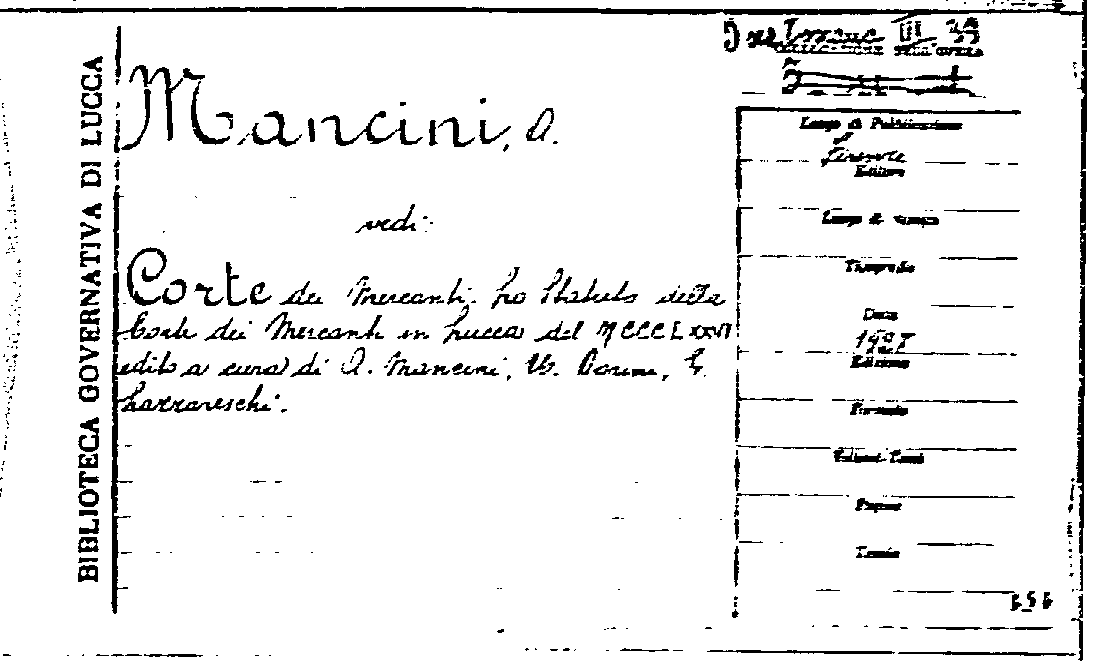 BIBLIOTECA GOVERNATIVA DI LUCCA
III 39
COLLOCAZIONE DELL'OPERA
Mancini, A.
vedi:
Corte dei Mercanti. Lo Statuto della
Corte dei Mercanti in Lucca del MCCCLXXVI
edito a cura di A. Mancini, U. Dorini, E.
Lazzareschi.
Luogo di Pubblicazione
Firenze
Editore
Luogo di stampa
Tipografia
Data
1927
Edizione
Formato
Volumi-Tomi
Pagine
Tavole